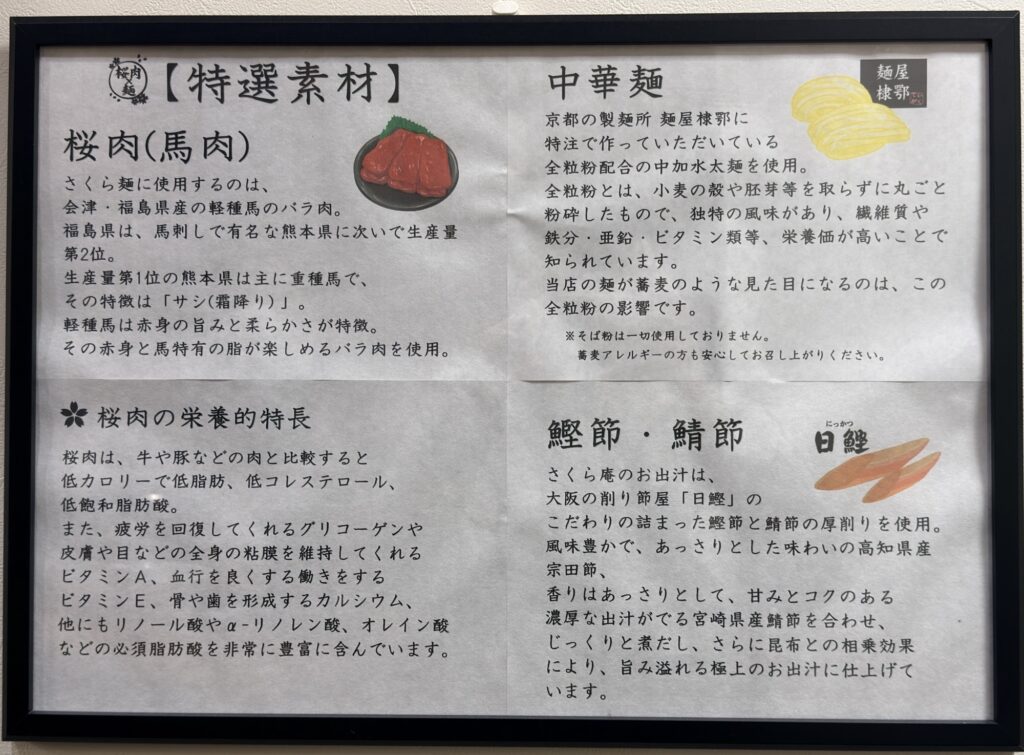 桜肉
麺
【特選素材】
桜肉(馬肉)
さくら麺に使用するのは、
会津・福島県産の軽種馬のバラ肉。
福島県は、馬刺しで有名な熊本県に次いで生産量
第2位。
生産量第1位の熊本県は主に重種馬で、
その特徴は「サシ(霜降り)」。
軽種馬は赤身の旨みと柔らかさが特徴。
その赤身と馬特有の脂が楽しめるバラ肉を使用。
中華麺
麺屋
棣鄂
ていがく
京都の製麺所 麺屋棣鄂に
特注で作っていただいている
全粒粉配合の中加水太麺を使用。
全粒粉とは、小麦の殻や胚芽等を取らずに丸ごと
粉砕したもので、独特の風味があり、繊維質や
鉄分・亜鉛・ビタミン類等、栄養価が高いことで
知られています。
当店の麺が蕎麦のような見た目になるのは、この
全粒粉の影響です。
※そば粉は一切使用しておりません。
蕎麦アレルギーの方も安心してお召し上がりください。
桜肉の栄養的特長
桜肉は、牛や豚などの肉と比較すると
低カロリーで低脂肪、低コレステロール、
低飽和脂肪酸。
また、疲労を回復してくれるグリコーゲンや
皮膚や目などの全身の粘膜を維持してくれる
ビタミンA、血行を良くする働きをする
ビタミンE、骨や歯を形成するカルシウム、
他にもリノール酸やα-リノレン酸、オレイン酸
などの必須脂肪酸を非常に豊富に含んでいます。
鰹節・鯖節
にっかつ
日鰹
さくら庵のお出汁は、
大阪の削り節屋「日鰹」の
こだわりの詰まった鰹節と鯖節の厚削りを使用。
風味豊かで、あっさりとした味わいの高知県産
宗田節、
香りはあっさりとして、甘みとコクのある
濃厚な出汁がでる宮崎県産鯖節を合わせ、
じっくりと煮だし、さらに昆布との相乗効果
により、旨み溢れる極上のお出汁に仕上げて
います。